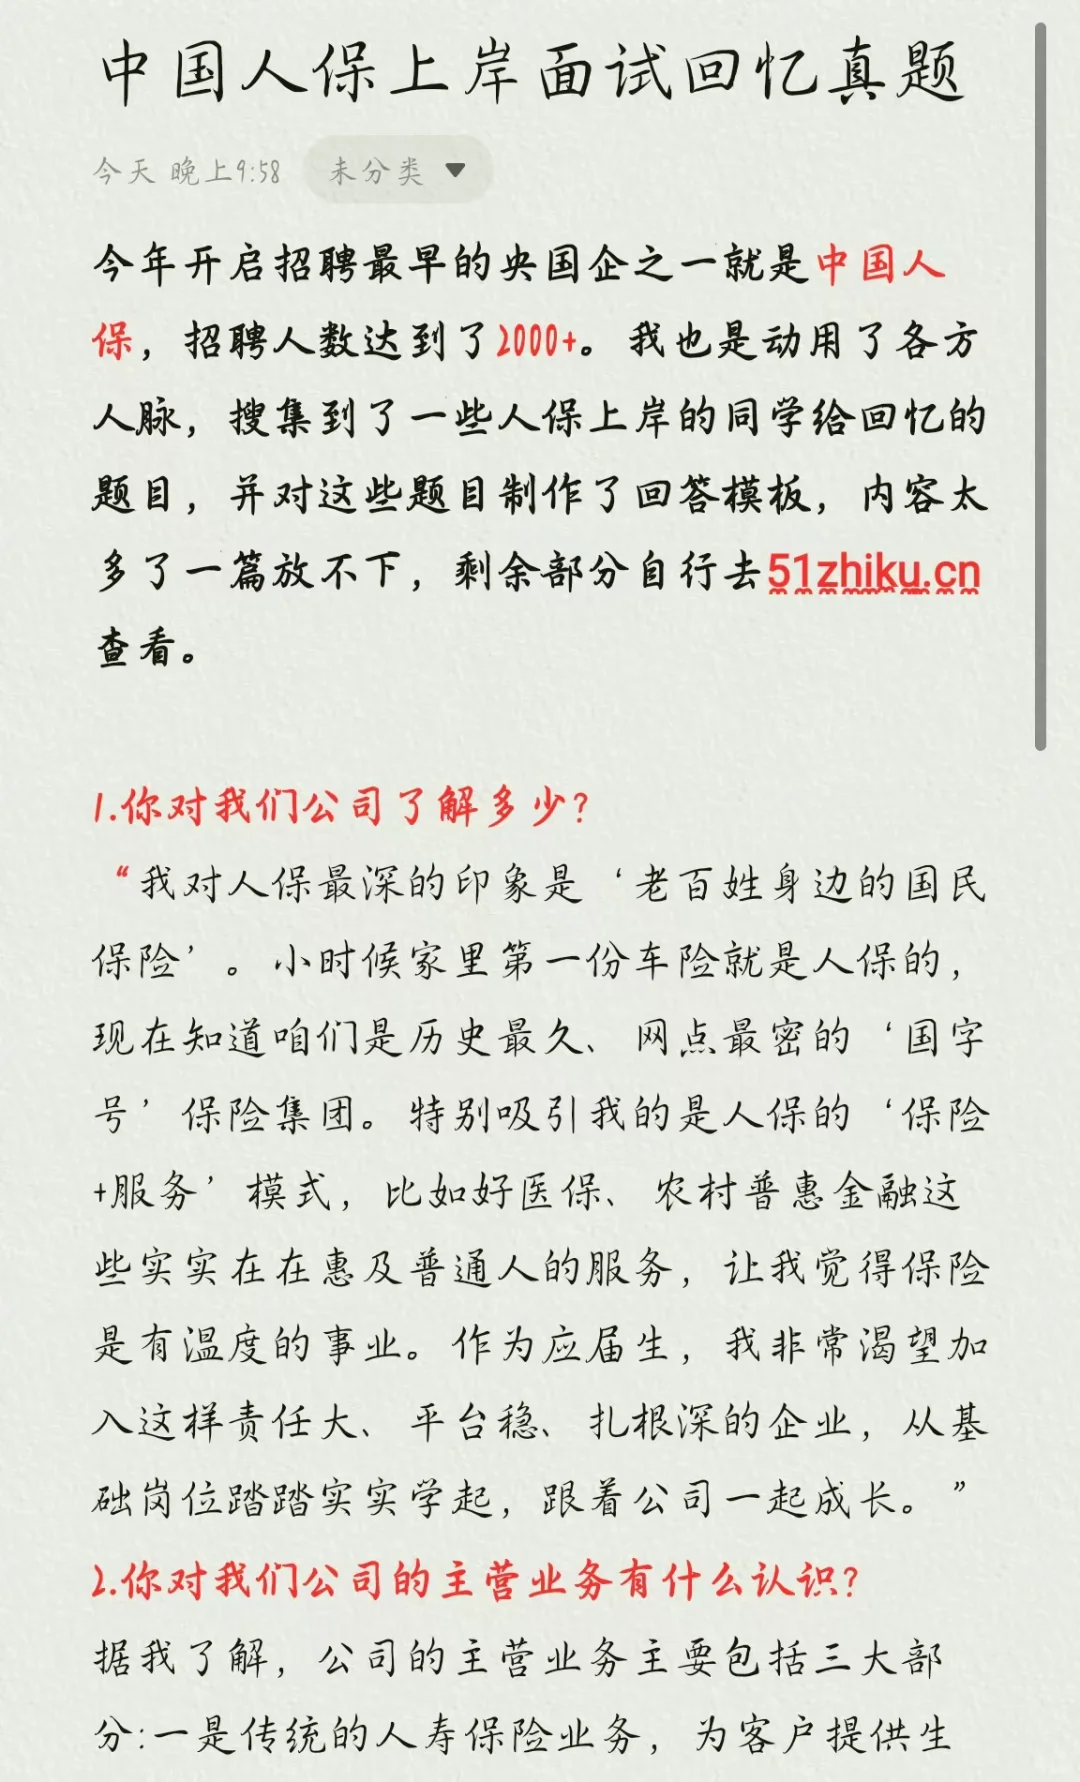 中国人保上岸面试回忆真题
今天 晚上9:58 未分类
今年开启招聘最早的央国企之一就是中国人
保，招聘人数达到了2000+。我也是动用了各方
人脉，搜集到了一些人保上岸的同学给回忆的
题目，并对这些题目制作了回答模板，内容太
多了一篇放不下，剩余部分自行去51zhiku.cn
查看。
1.你对我们公司了解多少？
“我对人保最深的印象是‘老百姓身边的国民
保险’。小时候家里第一份车险就是人保的，
现在知道咱们是历史最久、网点最密的‘国字
号’保险集团。特别吸引我的是人保的‘保险
+服务’模式，比如好医保、农村普惠金融这
些实实在在惠及普通人的服务，让我觉得保险
是有温度的事业。作为应届生，我非常渴望加
入这样责任大、平台稳、扎根深的企业，从基
础岗位踏踏实实学起，跟着公司一起成长。”
2.你对我们公司的主营业务有什么认识？
据我了解，公司的主营业务主要包括三大部
分:一是传统的人寿保险业务，为客户提供生